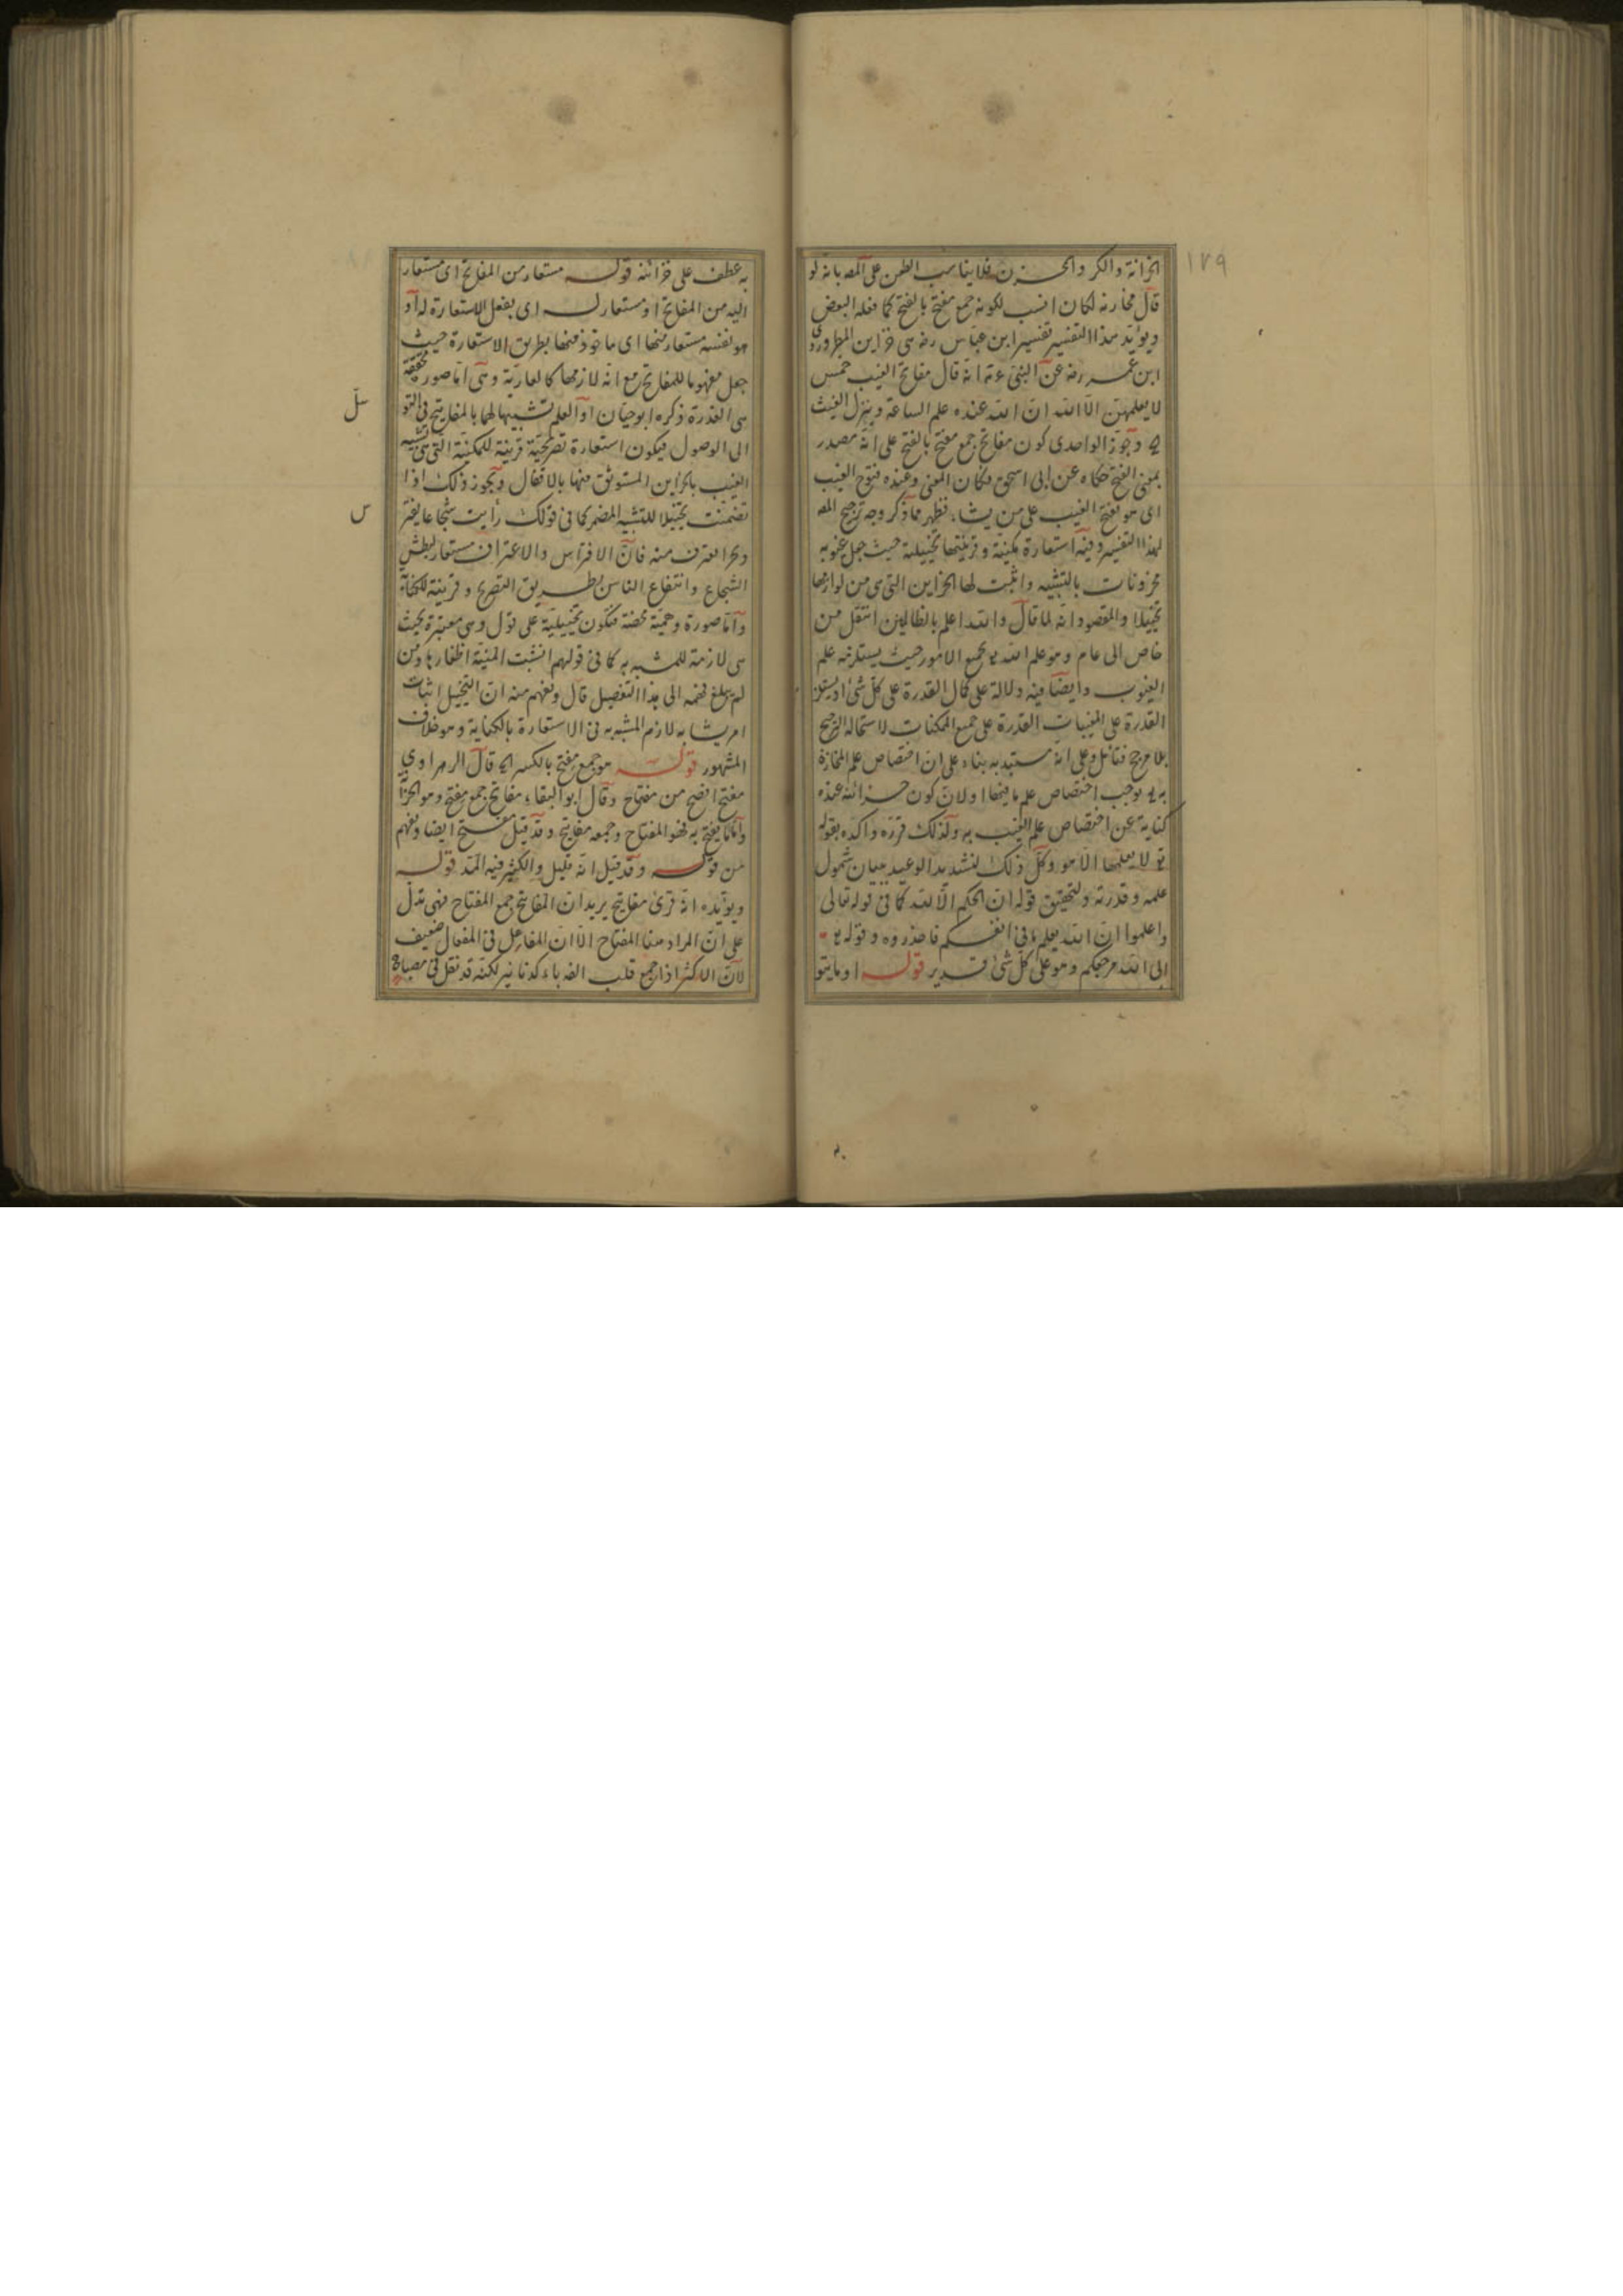 ١٧٩
الخزانة والكر والخزن فلا يناسب الطعن على المصه بانه لو
قال مخازنه لكان انسب لكونه جمع مفتح بالفتح كما فعله البعض
ويؤيد هذا التفسير تفسير ابن عباس رضه هى خزاين المطر وروى
ابن عمر رضه عن النبى عم انه قال مفاتح الغيب خمس
لا يعلمهن الا الله ان الله عنده علم الساعة وينزل الغيث
وجوز الواحدى كون مفاتح جمع مفتح بالفتح على انه مصدر
بمعنى الفتح حكاه عن ابى اسحق فكان المعنى وعنده فتوح الغيب
اى هو يفتح الغيب على من يشاء فظهر مما ذكر وجه ترجيح المصه
لهذا التفسير وفيه استعارة مكنية وقرينتها تخييلية حيث جعل غيوبه
مخزونات بالتشبيه واثبت لها الخزاين التى هى من لوازمها
تخييلا والمقصود انه لما قال والله اعلم بالظالمين انتقل من
خاص الى عام وهو علم الله تع بجميع الامور حيث يستلزمه علم
الغيوب وايضا فيه دلالة على كمال القدرة على كل شئ اذ يستلز
القدرة على المغيبات القدرة على جميع الممكنات لاستحالة الترجيح
بلا مرجح فتامل وعلى انه مستبد به بناء على ان اختصاص علم المخازن
به تع يوجب اختصاص علم ما فيها او لان كون خزائنه عنده
كناية عن اختصاص علم الغيب به ولذلك قرره واكده بقوله
تع لا يعلمها الا هو وكل ذلك لتشديد الوعيد ببيان شمول
علمه وقدرته ولتحقيق قوله ان الحكم الا لله كما فى قوله تعالى
واعلموا ان الله يعلم ما فى انفسكم فاحذروه وقوله تع
الى الله مرجعكم وهو على كل شئ قدير قوله او ما يتو
به عطف على خزائنه قوله مستعار من المفاتح اى مستعار
اليه من المفاتح او مستعار له اى بفعل الاستعارة له او
هو نفسه مستعار منها اى ماخوذ منها بطريق الاستعارة حيث
جعل مفهوما للمفاتح مع انه لازمها كالعارية وهى اما صور محققة
هى القدرة ذكره ابو حيان او العلم تشبيها لها بالمفاتيح فى التو
الى الوصول فيكون استعارة تصريحية قرينة للمكنية التى هى تشبيه
الغيب بالخزاين المستوثق منها بالاقفال ويجوز ذلك اذا
تضمنت تخييلا للتشبيه المضمر كما فى قولك رأيت شجاعا يفتر
وبحرا يغترف منه فان الافتراس والاغتراف مستعار لبطش
الشجاع وانتفاع الناس بطريق التصريح وقرينة للمكناة
واما صورة وهمية محضة فتكون تخييلية على قول وهى معتبرة بحيث
هى لازمة للمشبه به كما فى قولهم انشبت المنية اظفارها ومن
لم يبلغ فهمه الى هذا التفصيل قال ويفهم منه ان التخييل اثبات
امر يشابه لازم المشبه به فى الاستعارة بالكناية وهو خلاف
المشهور قوله هو جمع مفتح بالكسر قال الزهراوي
مفتح افصح من مفتاح وقال ابو البقاء مفاتح جمع مفتح وهو الخزا
واما ما يفتح به فهو المفتاح وجمعه مفاتيح وقد قيل مفتح ايضا ويفهم
من قوله وقد قيل انه قليل والكثير فيه المد قوله
ويؤيده انه قرئ مفاتيح يريد ان المفاتيح جمع المفتاح فهى تدل
على ان المراد منها المفتاح الا ان المفاعل فى المفعال ضعيف
لان الاكثر اذا جمع قلب الفه ياء كدنانير لكنه قد نقل فى مصباح
سل
س